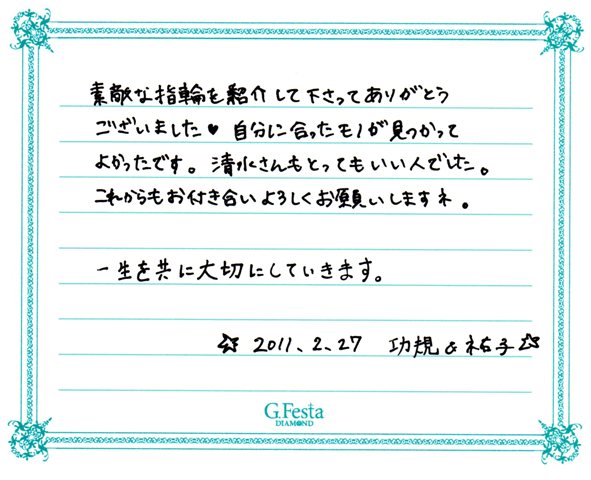 素敵な指輪を紹介して下さってありがとう
ございました♥ 自分に合ったモノが見つかって
よかったです。清水さんもとってもいい人でした。
これからもお付き合いよろしくお願いしますネ。
一生を共に大切にしていきます。
☆ 2011、2、27 功規 & 祐子☆
G.Festa
DIAMOND